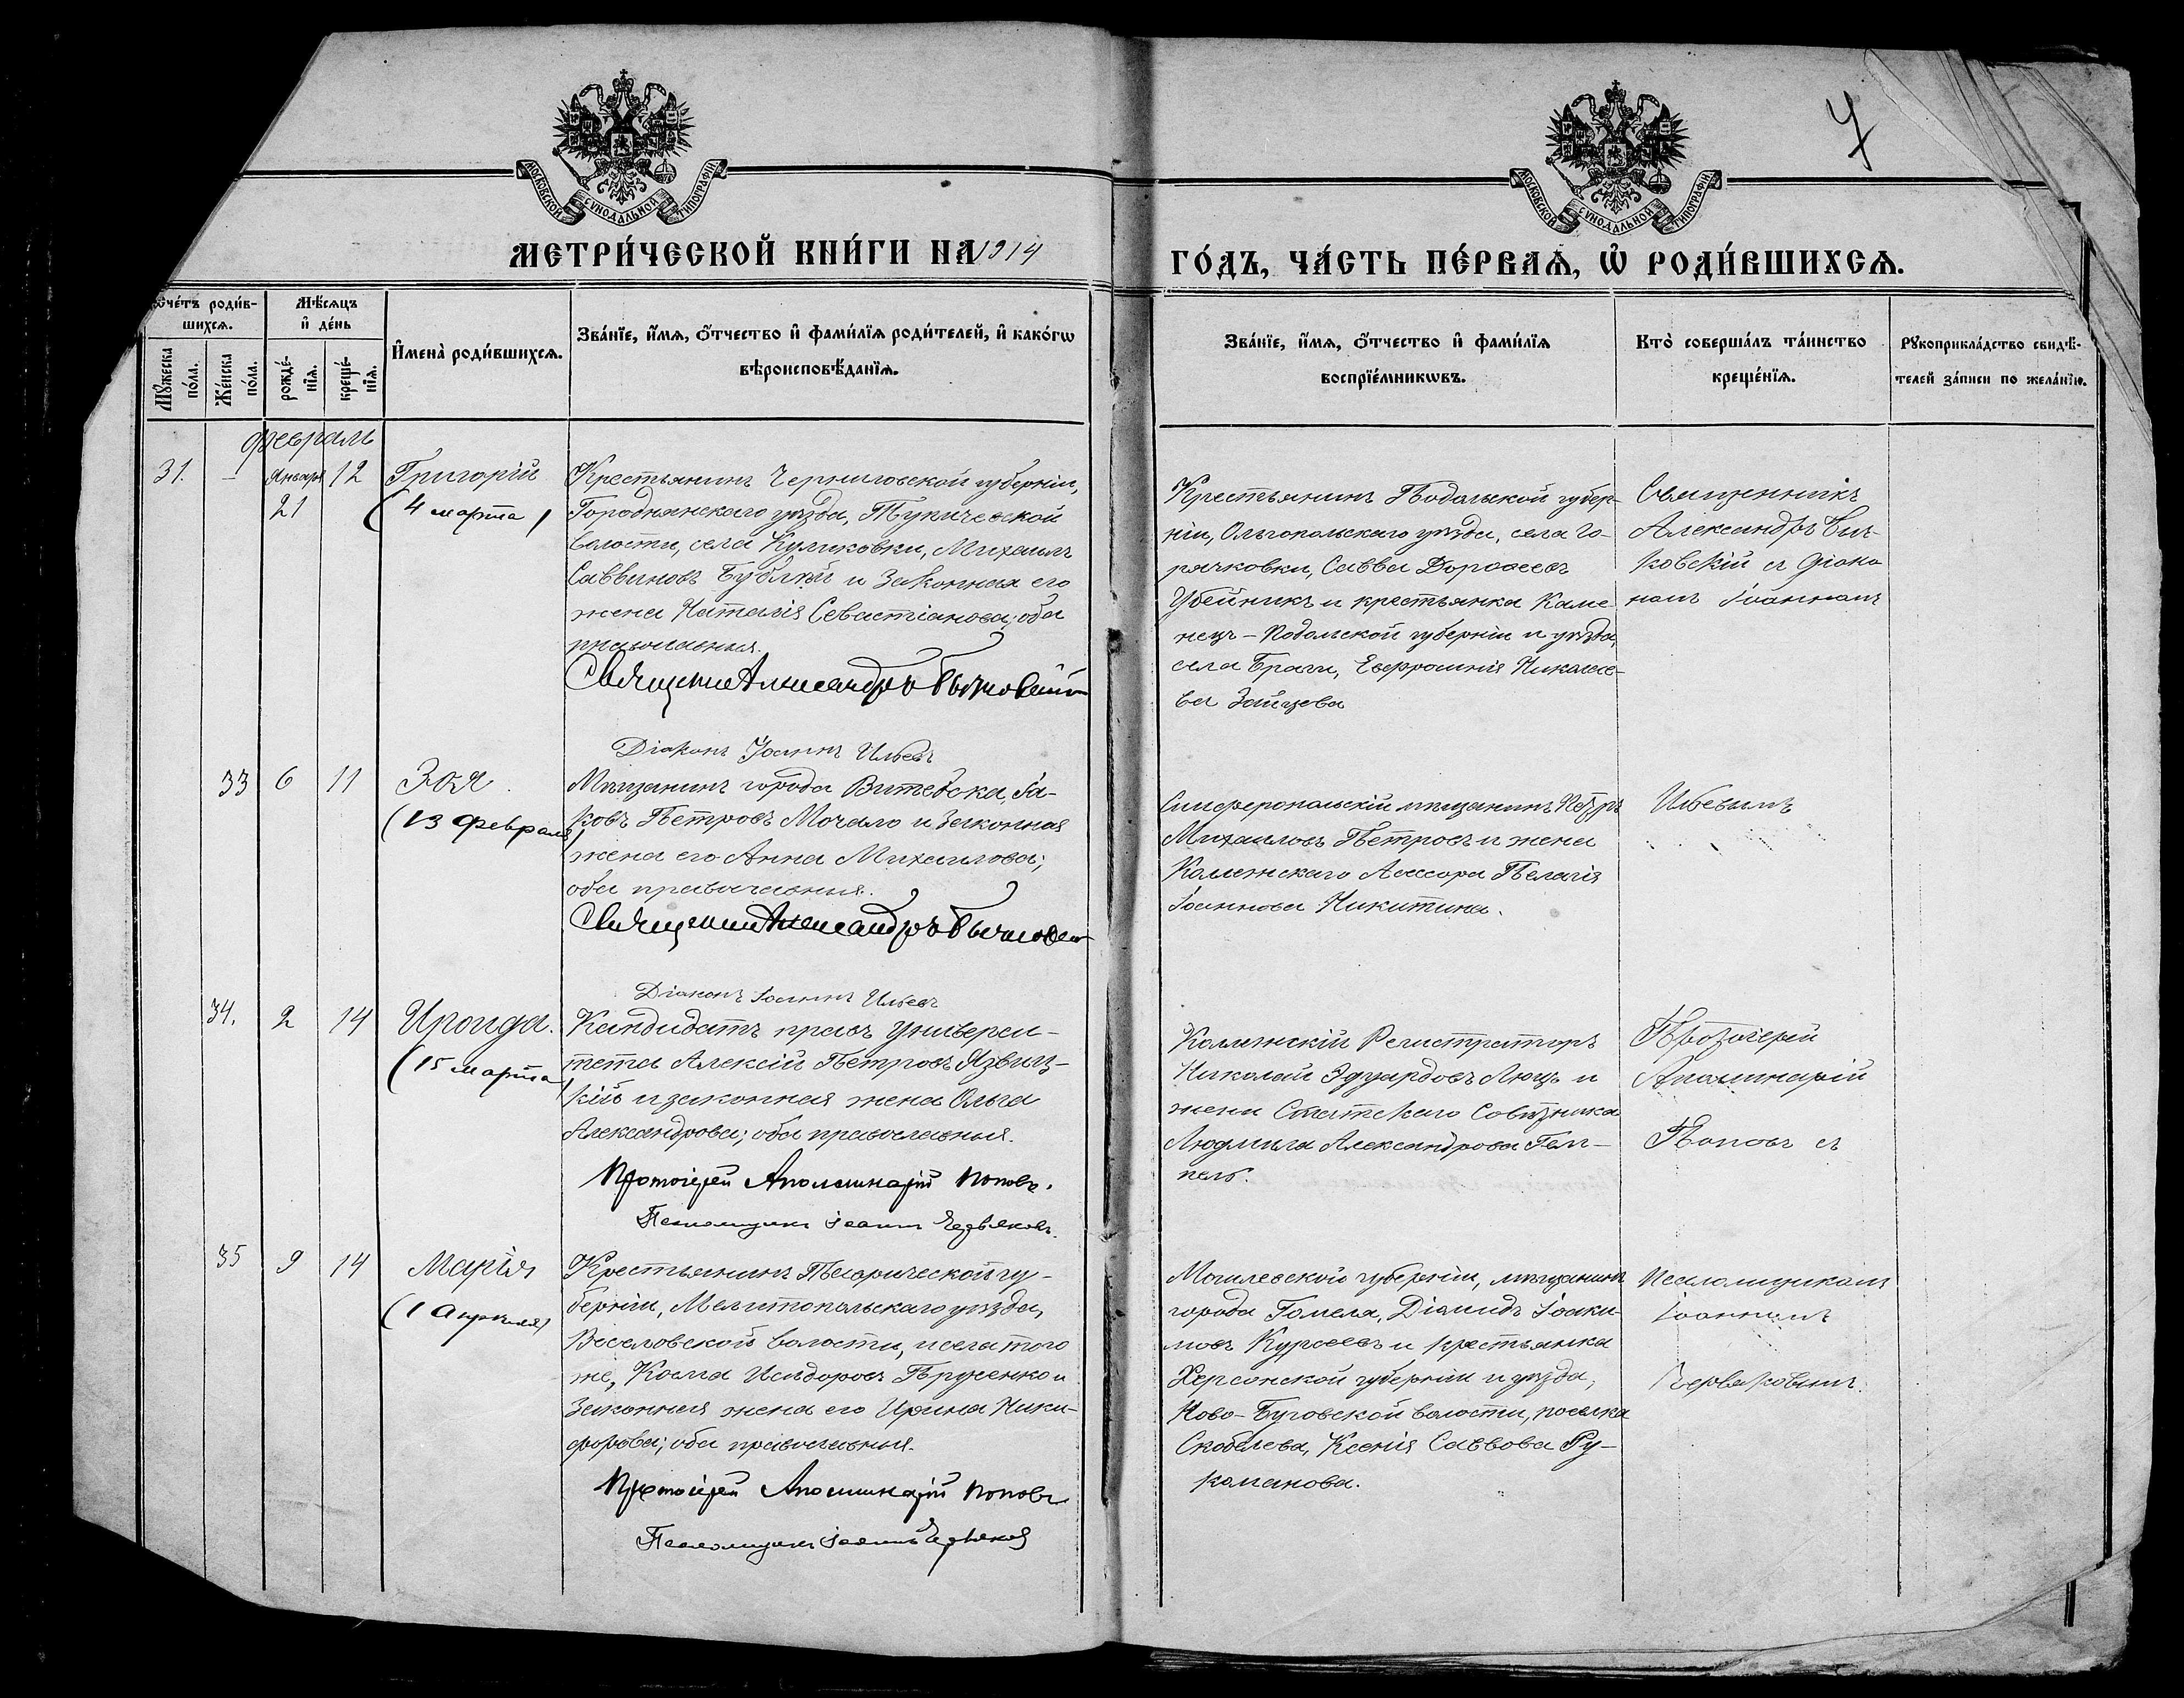 7
МОСКОВСКОЙ СѴНОДАЛЬНОЙ ТИПОГРАФІИ
МОСКОВСКОЙ СѴНОДАЛЬНОЙ ТИПОГРАФІИ
МЕТРИ́ЧЕСКОЙ КНИ́ГИ НА 1914
ГО́ДЪ, ЧА́СТЬ ПЕ́РВАѦ, Ѡ҆ РОДИ́ВШИХСѦ.
Сче́тъ роди́в-
шихсѧ.
Мꙋ́жеска по́ла.
Же́нска по́ла.
Мѣ́сѧцъ
и҆ де́нь
рожде́-
нїѧ.
креще́-
нїѧ.
И҆мена̀ роди́вшихсѧ.
Зва́нїе, и҆́мѧ, ѻ҆́тчество и҆ фами́лїѧ роди́телей, и҆ како́гѡ
вѣроисповѣ́данїѧ.
Зва́нїе, и҆́мѧ, ѻ҆́тчество и҆ фами́лїѧ
воспрїе́мникѡвъ.
Кто̀ соверша́лъ та́инство
креще́нїѧ.
Рꙋкоприкла́дство свидѣ́-
телей за́писи по жела́нїю.
Февраль
31. — Января 21 12
Григорій
(4 марта)
Крестьянинъ Черниговской губерніи,
Городнянскаго уѣзда, Тупичевской
волости, села Куликовки, Михаилъ
Саввиновъ Бублей и законная его
жена Наталія Севастіанова; оба
православныя.
Священник Александръ Бычковскій
Діаконъ Іоаннъ Ильевъ
Крестьянинъ Подольской губер-
ніи, Ольгопольскаго уѣзда, села Го-
рячковки, Савва Дороѳеевъ
Убейникъ и крестьянка Каме-
нецъ-Подольской губерніи и уѣзда,
села Браги, Евфросинія Николае-
ва Зайцева
Священникъ
Александръ Быч-
ковскій съ Діако-
номъ Іоанномъ
33 6 11
Зоя
(13 февраля)
Мѣщанинъ города Витебска, Іа-
ковъ Петровъ Мочало и законная
жена его Анна Михаилова;
оба православныя.
Священник Александръ Бычковскій
Діаконъ Іоаннъ Ильевъ
Симферопольскій мѣщанинъ Петръ
Михаиловъ Петровъ и жена
Коллежскаго Асессора Пелагія
Іоаннова Никитина.
Ильевымъ
34. 2 14
Ираида.
(15 марта)
Кандидатъ правъ Универси-
тета Алексій Петровъ Язвиц-
кій и законная жена Ольга
Александрова; оба православныя.
Протоіерей Аполлинарій Поповъ.
Псаломщикъ Іоаннъ Червяковъ.
Коллежскій Регистраторъ
Николай Эдуардовъ Люцъ и
жена Статскаго Совѣтника
Людмила Александрова Гем-
пель.
Протоіерей
Аполинарій
Поповъ съ
35 9 14
Марія
(1 Апреля)
Крестьянинъ Таврической гу-
берніи, Мелитопольскаго уѣзда,
Веселовской волости, и села того
же, Косма Исидоровъ Пруженко и
законная жена его Ирина Ники-
форова; оба православныя.
Протоіерей Аполлинарій Поповъ
Псаломщикъ Іоаннъ Червяковъ
Могилевской губерніи, мѣщанинъ
города Гомеля, Діомидъ Іоаки-
мовъ Курсеевъ и крестьянка
Херсонской губерніи и уѣзда,
Ново-Буговской волости, поселка
Скобелева, Ксенія Саввова Ру-
команова.
Псаломщикомъ
Іоанномъ
Червяковымъ.